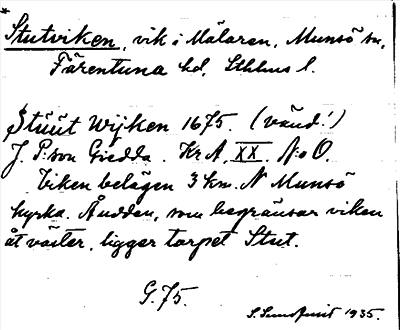 *
Stutviken, vik i Mälaren, Munsö sn,
Färentuna hd, Sthlms l.
Stüüt Wijken 1675. (vänd!)
J. P:son Giedda. Kr A, XX. N:o O.
Viken belägen 3 km. N Munsö
kyrka. Ån udden, som begränsar viken
åt väster, ligger torpet Stut.
G. 75.
S. Sundquist 1935.